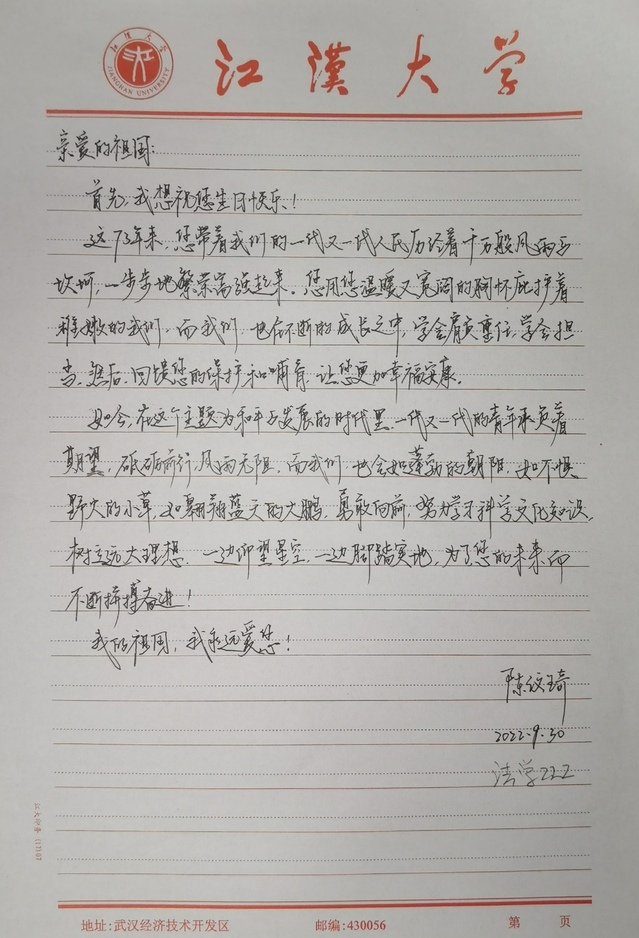 江漢大学
JIANGHAN UNIVERSITY
江漢大学
亲爱的祖国:
首先,我想祝您生日快乐!
这73年来,您带着我们的一代又一代人民历经着千万般风雨与
坎坷,一步步地繁荣富强起来。您用您温暖又宽阔的胸怀庇护着
稚嫩的我们,而我们,也在不断的成长之中,学会肩负重任,学会担
当,然后,回馈您的保护和哺育,让您更加幸福安康。
如今,在这个主题为和平与发展的时代里,一代又一代的青年承负着
期望,砥砺前行,风雨无阻。而我们,也会如蓬勃的朝阳,如不惧
野火的小草,如翱翔蓝天的大鹏,勇敢向前,努力学习科学文化知识,
树立远大理想,一边仰望星空,一边脚踏实地,为了您的未来而
不断拼搏奋进!
我的祖国,我永远爱您!
陈纹琦
2022.9.30
法学222
江大印务(1710)
地址:武汉经济技术开发区 邮编:430056 第 页